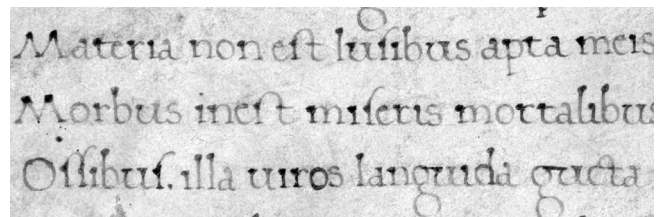 Materia non est lusibus apta meis
Morbus inest miseris mortalibus
Ossibus. illa uiros languida gucta